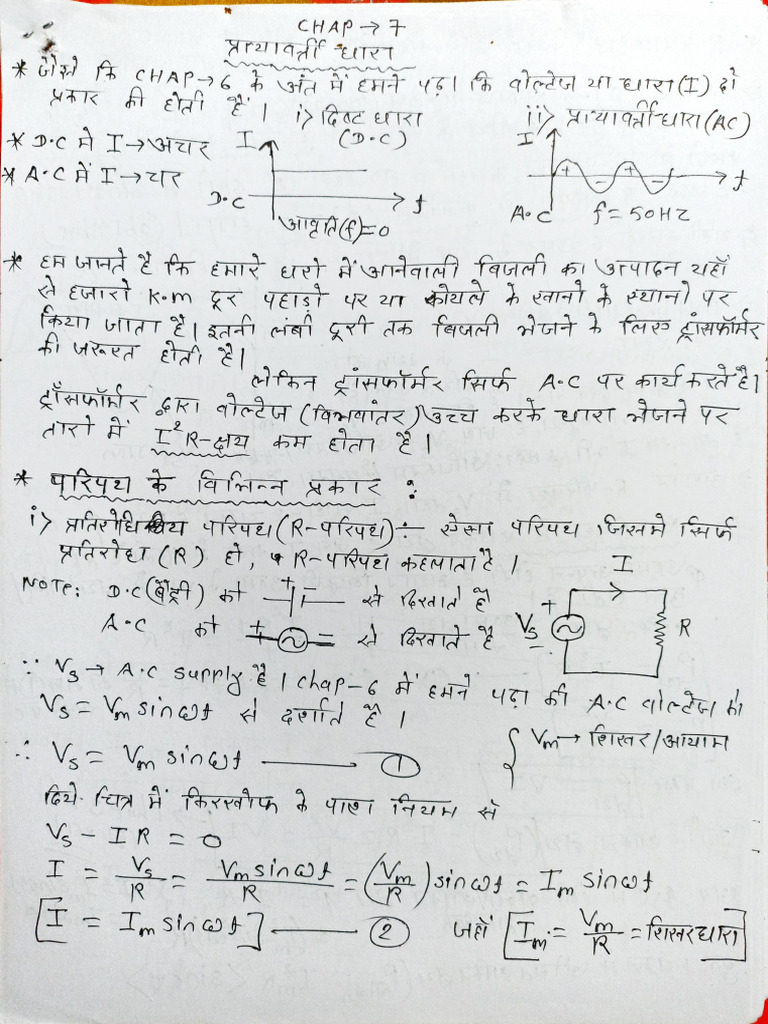 CHAP → 7
प्रत्यावर्ती धारा
* जैसे कि CHAP → 6 के अंत में हमने पढ़ा कि वोल्टेज या धारा (I) दो
प्रकार की होती है। i> दिष्ट धारा (D.C) ii> प्रत्यावर्ती धारा (AC)
* D.C में I → अचर
* A.C में I → चर
I
D.C
t
आवृति (f) = 0
I
+ - + -
t
A.C f = 50HZ
* हम जानते है कि हमारे घरो में आनेवाली बिजली का उत्पादन यहाँ
से हजारो K.m दूर पहाडो पर या कोयले के खानो के स्थानो पर
किया जाता है। इतनी लंबी दूरी तक बिजली भेजने के लिए ट्रांसफॉर्मर
की जरूरत होती है।
लेकिन ट्रांसफॉर्मर सिर्फ A.C पर कार्य करते है।
ट्राँसफॉर्मर द्वारा वोल्टेज (विभवांतर) उच्च करके धारा भेजने पर
तारो में I²R-क्षय कम होता है।
* परिपथ के विभिन्न प्रकार :
i> प्रतिरोधिय परिपथ (R-परिपथ) ÷ ऐसा परिपथ जिसमे सिर्फ
प्रतिरोध (R) हो, R-परिपथ कहलाता है।
NOTE: D.C (बैट्री) को + - से दिखाते है
A.C को + - से दिखाते है
I
+
Vs
-
R
∵ Vs → A.C supply है। chap-6 में हमने पढ़ा की A.C वोल्टेज को
Vs = Vm sinωt से दर्शाते है।
{ Vm → शिखर/आयाम
∴ Vs = Vm sinωt ——— 1
दिये चित्र में किरखोफ के पाश नियम से
Vs - IR = 0
I = Vs/R = Vm sinωt/R = (Vm/R) sinωt = Im sinωt
[I = Im sinωt] ——— 2 जहाँ [Im = Vm/R = शिखर धारा]